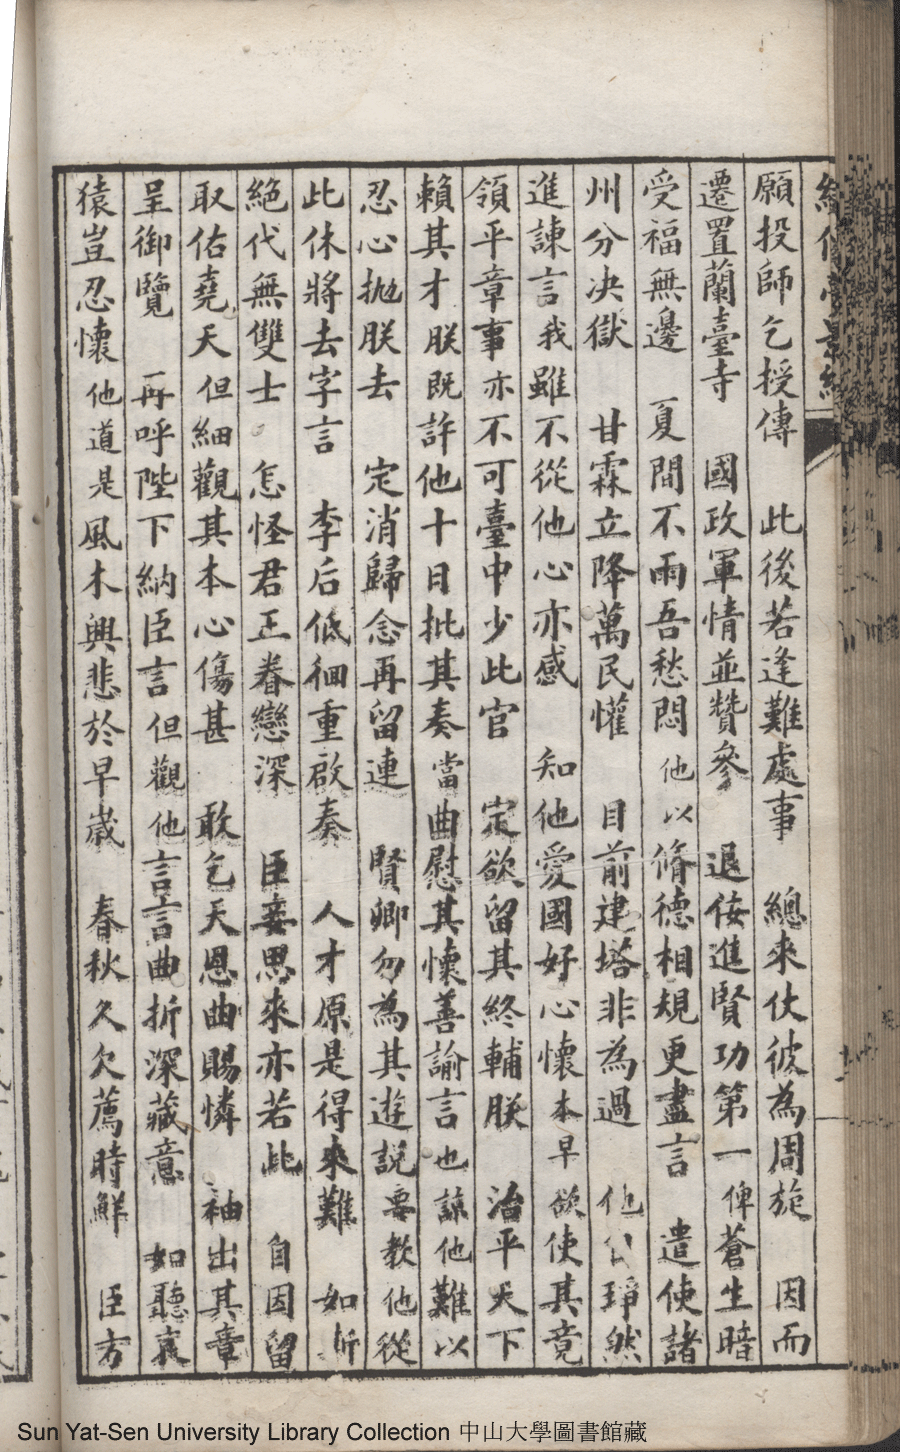 願投師乞授傳　此後若逢難處事　總來仗彼為周旋　因而
遷置蘭臺寺　國政軍情並贊參　退侫進賢功第一俾蒼生暗
受福無邊　夏間不雨吾愁悶他以脩德相規更盡言　遣使諸
州分决獄　甘霖立降萬民懽　目前建塔非為過　他　琤然
進諫言我雖不從他心亦感　知他愛國好心懷本早欲使其竟
領平章事亦不可臺中少此官　定欲留其終輔朕　治平天下
賴其才朕既許他十日批其奏當曲慰其懷善諭言也諒他難以
忍心抛朕去　定消歸念再留連　賢卿勿為其遊説要教他從
此休將去字言　李后低徊重啟奏　人才原是得來難　如斯
絕代無雙士　怎怪君王眷戀深　臣妾思來亦若此　自因留
取佑堯天但細觀其本心傷甚　敢乞天恩曲賜憐　袖出其章
呈御覽　再呼陛下納臣言但觀他言言曲折深藏意　如聽哀
猿豈忍懷他道是風木興悲於早歲　春秋久欠薦時鮮　臣方
Sun Yat-Sen University Library Collection 中山大學圖書館藏